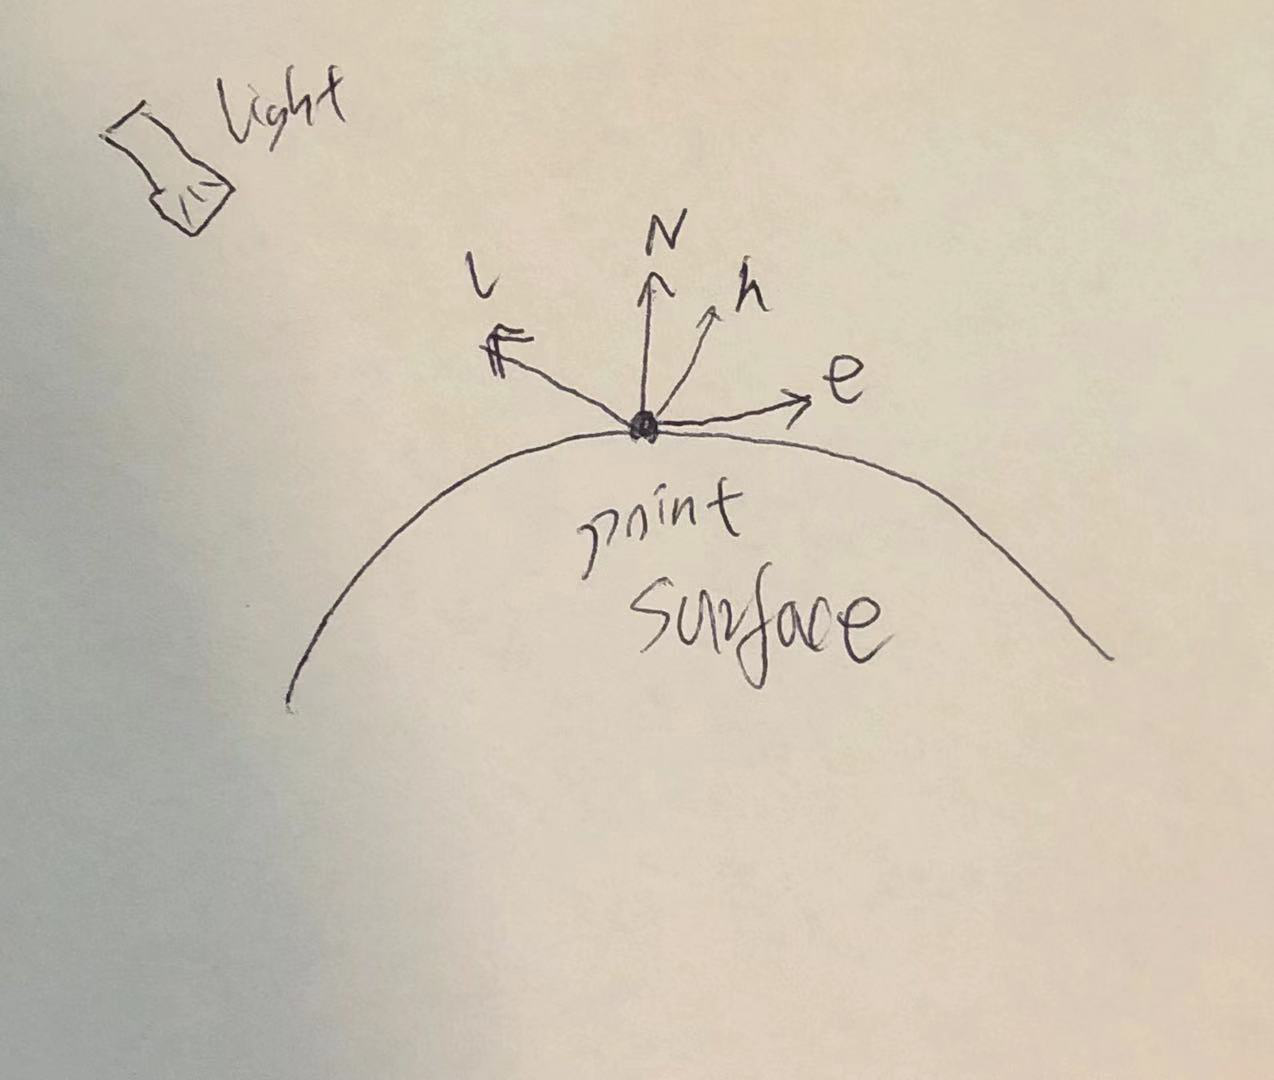 light
N
l
h
e
point
surface